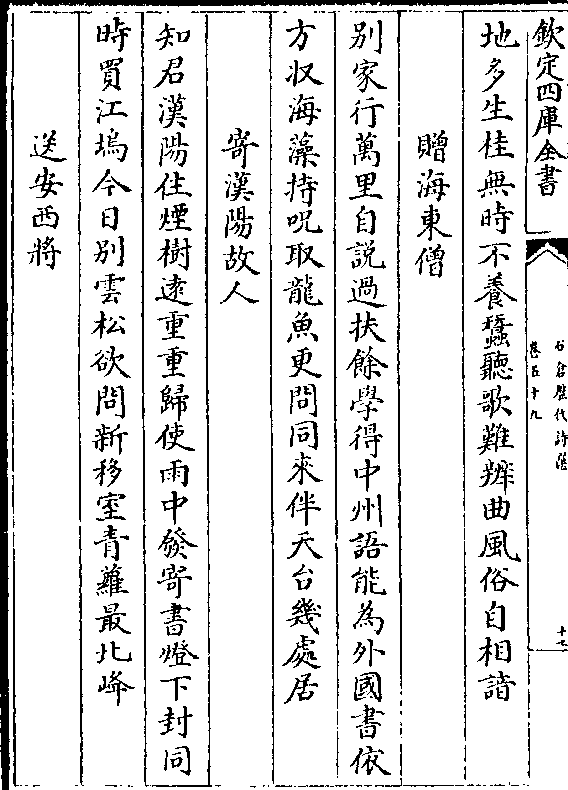 欽定四庫全書
石倉歷代詩選
卷五十九
十七
地多生桂無時不養蠶聽歌難辨曲風俗自相諳
贈海東僧
別家行萬里自說過扶餘學得中州語能為外國書依
方収海藻持呪取龍魚更問同來伴天台幾處居
寄漢陽故人
知君漢陽住煙樹逺重重歸使雨中發寄書燈下封同
時買江塢今日別雲松欲問新移室青蘿最北峰
送安西將